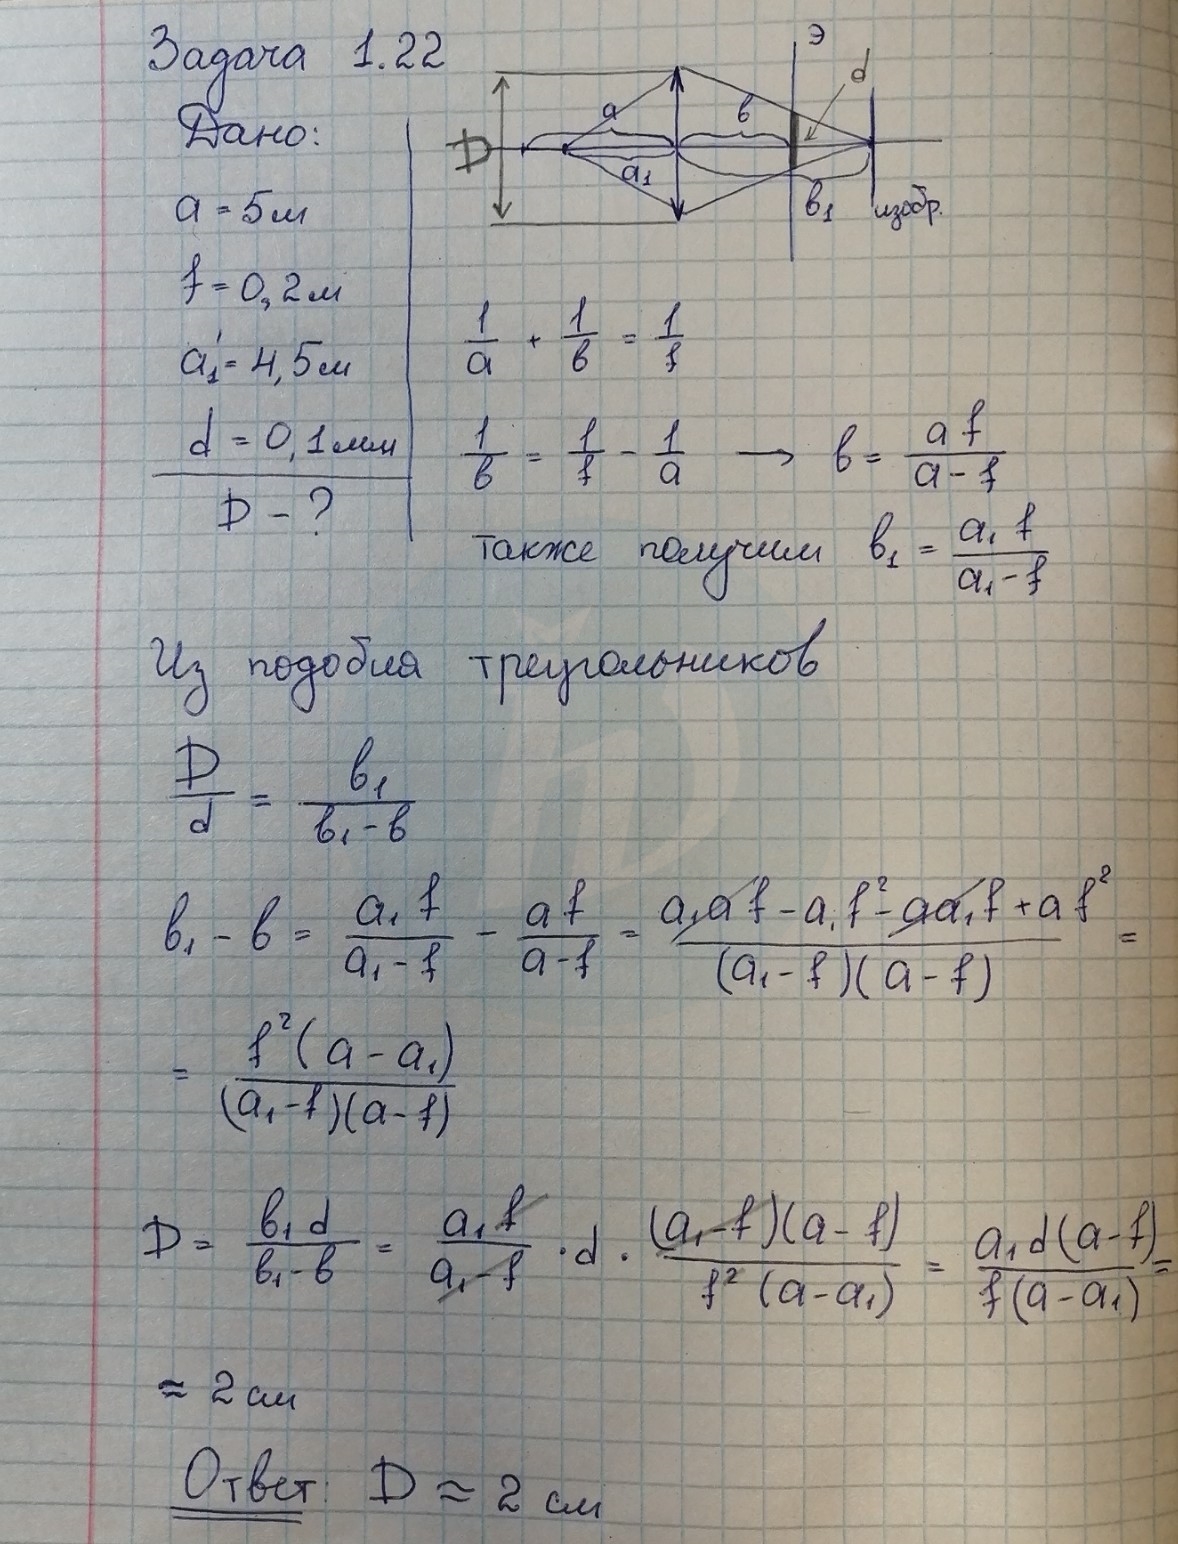 Задача 1.22
Дано:
a = 5м
f = 0,2м
a₁ = 4,5м
d = 0,1мм
D - ?
D
a
a₁
в
в₁
Э
d
изобр.
1/a + 1/в = 1/f
1/в = 1/f - 1/a → в = af/(a - f)
также получим в₁ = a₁f/(a₁ - f)
Из подобия треугольников
D/d = в₁/(в₁ - в)
в₁ - в = a₁f/(a₁ - f) - af/(a - f) = (a₁af - a₁f² - aa₁f + af²)/((a₁ - f)(a - f)) =
= f²(a - a₁)/((a₁ - f)(a - f))
D = в₁d/(в₁ - в) = a₁f/(a₁ - f) · d · (a₁ - f)(a - f)/(f²(a - a₁)) = a₁d(a - f)/(f(a - a₁)) =
≈ 2 см
Ответ: D ≈ 2 см